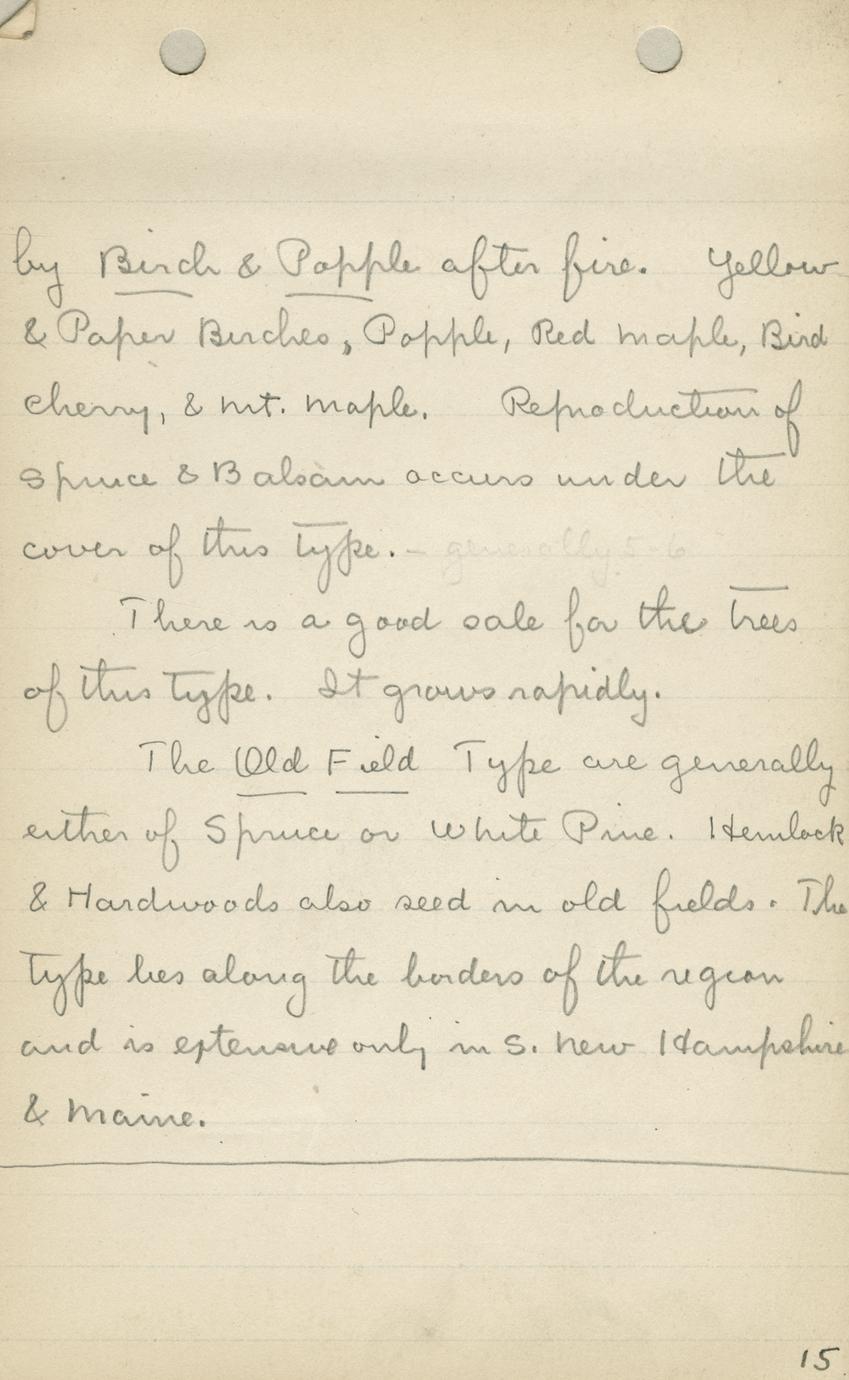 by Birch & Popple after fire. Yellow
& Paper Birches, Popple, Red Maple, Bird
Cherry, & Mt. Maple. Reproduction of
Spruce & Balsam occurs under the
cover of this type. - generally 5-6
There is a good sale for the trees
of this type. It grows rapidly.
The Old Field Type are generally
either of Spruce or White Pine. Hemlock
& Hardwoods also seed in old fields. The
type lies along the borders of the region
and is extensive only in S. New Hampshire
& Maine.
15